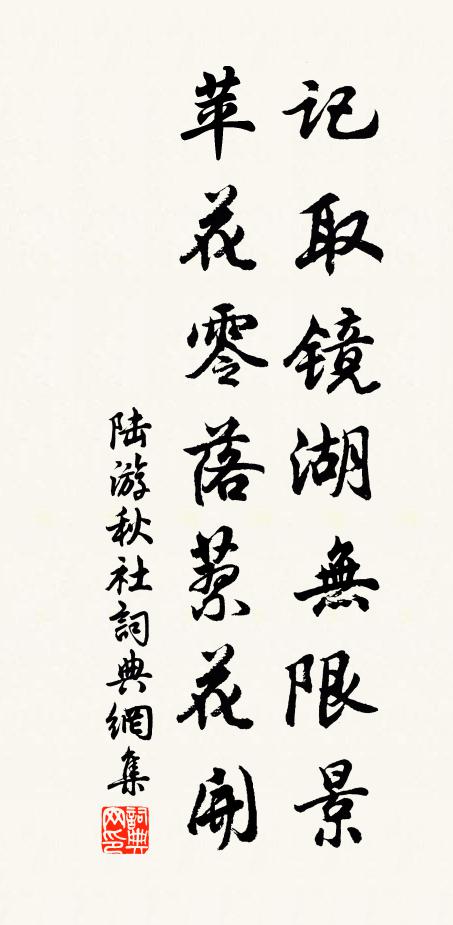 记取镜湖無限景
苹花零落蓼花開
陆游秋社詞典網集
詞典网印